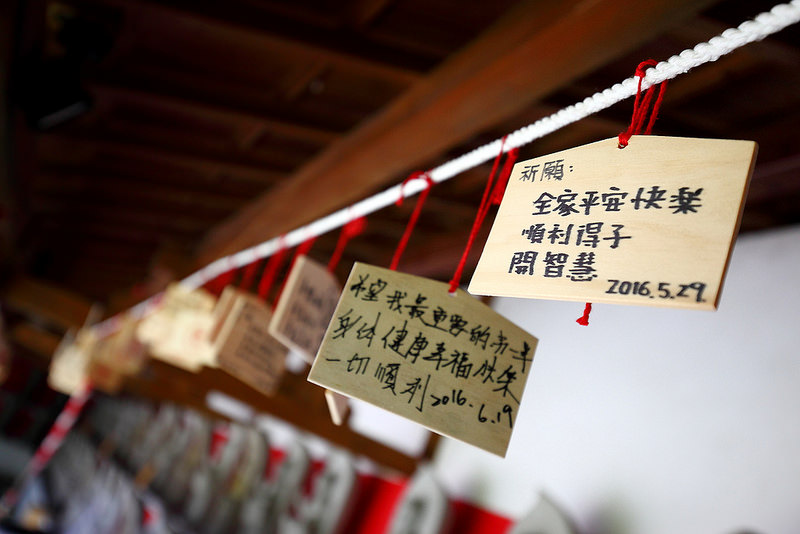 祈願:
全家平安快樂
順利得子
開智慧
2016.5.29.
希望我最重要的
身体健康幸福快樂
一切順利2016.6.19